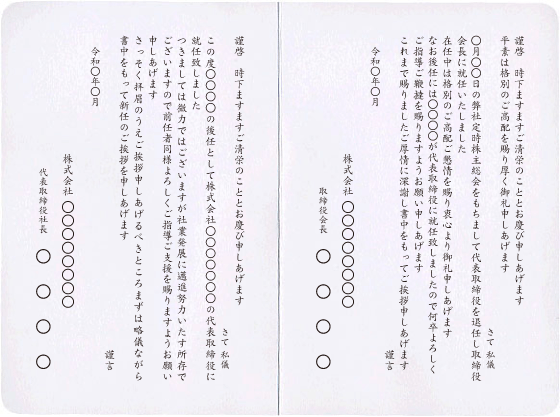 謹啓　時下ますますご清栄のこととお慶び申しあげます
平素は格別のご高配を賜り厚く御礼申しあげます
さて 私儀
〇月〇〇日の弊社定時株主総会をもちまして代表取締役を退任し取締役
会長に就任いたしました
在任中は格別のご高配ご懇情を賜り衷心より御礼申しあげます
なお後任には〇〇〇〇が代表取締役に就任致しましたので何卒よろしく
ご指導ご鞭撻を賜りますようお願い申しあげます
これまで賜りましたご厚情に深謝し書中をもってご挨拶申しあげます
謹言
令和〇年〇月
株式会社〇〇〇〇〇〇〇〇
取締役会長　〇　〇　〇　〇
謹啓　時下ますますご清栄のこととお慶び申しあげます
さて 私儀
この度〇〇〇〇の後任として株式会社〇〇〇〇〇〇〇の代表取締役に
就任致しました
つきましては微力ではございますが社業発展に邁進努力いたす所存で
ございますので前任者同様よろしくご指導ご支援を賜りますようお願い
申しあげます
さっそく拝眉のうえご挨拶申しあげるべきところまずは略儀ながら
書中をもって新任のご挨拶を申しあげます
謹言
令和〇年〇月
株式会社〇〇〇〇〇〇〇〇
代表取締役社長　〇　〇　〇　〇